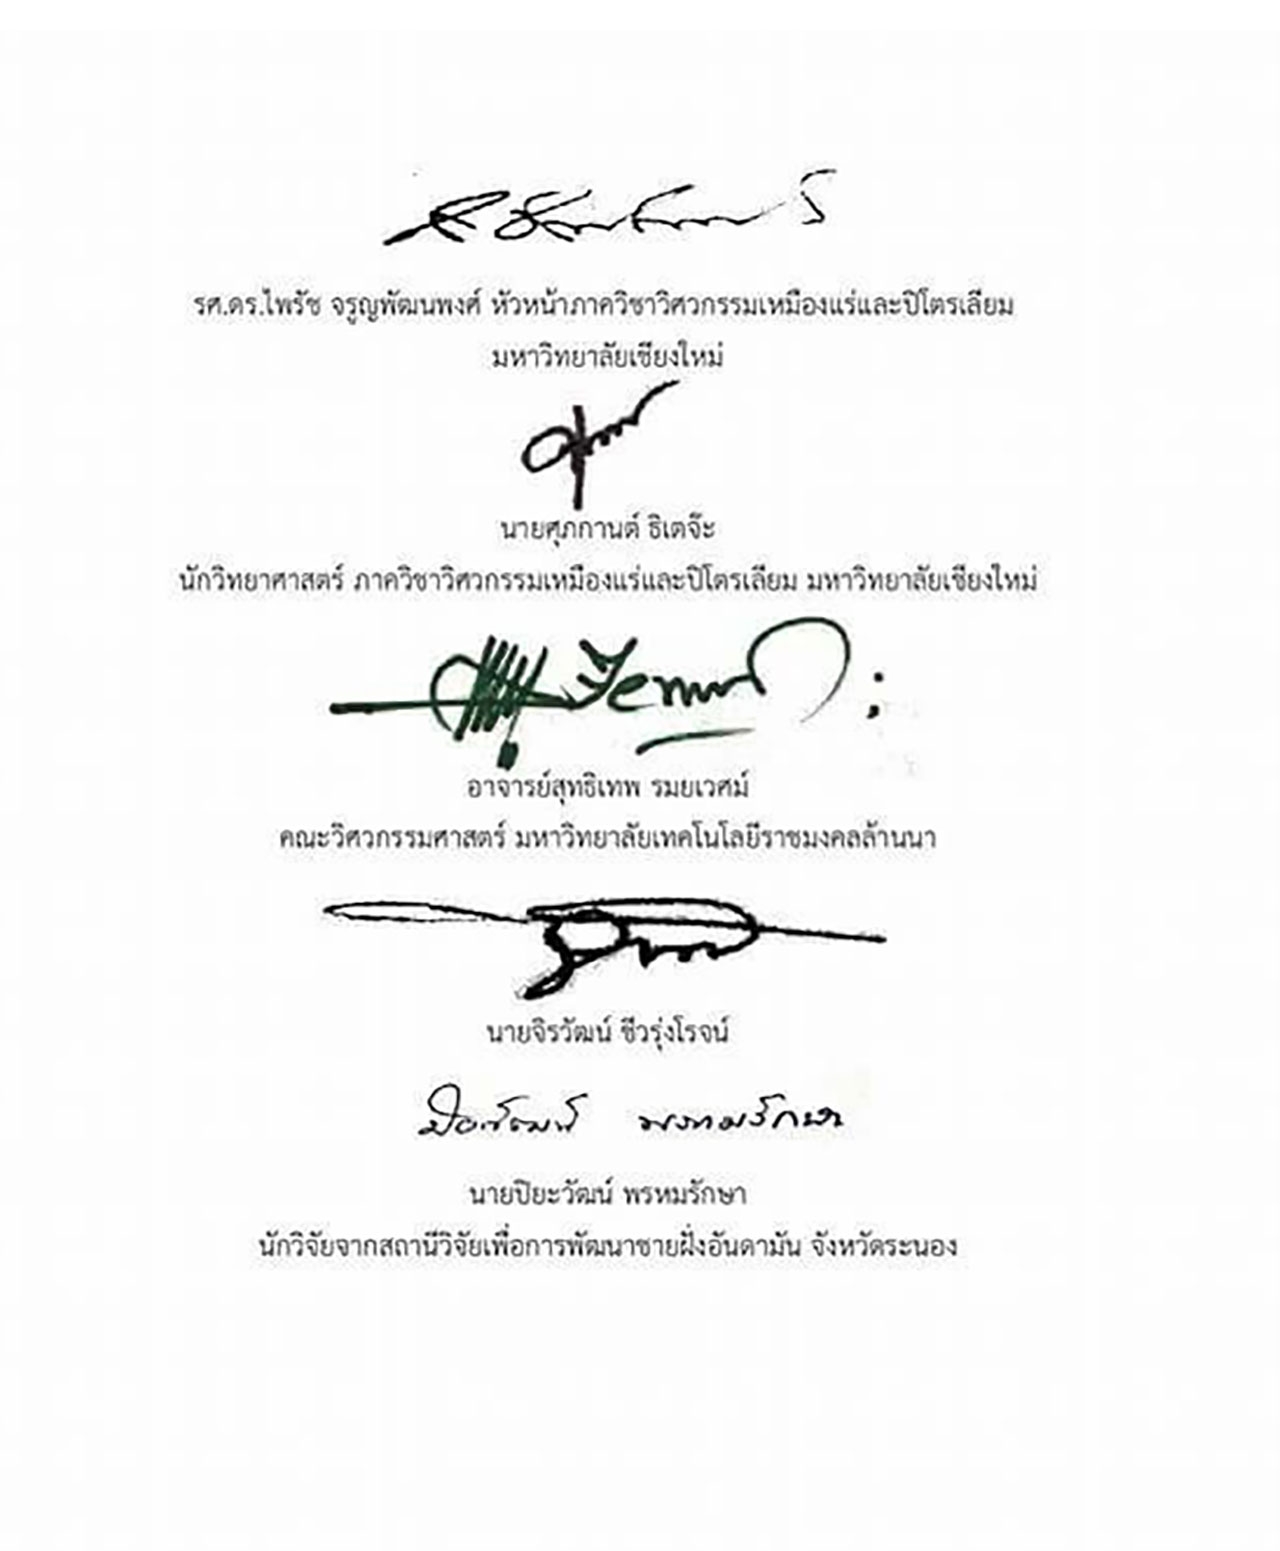 รศ.ดร.ไพรัช จรูญพัฒนพงศ์ หัวหน้าภาควิชาวิศวกรรมเหมืองแร่และปิโตรเลียม
มหาวิทยาลัยเชียงใหม่
นายศุภกานต์ ธิเตจ๊ะ
นักวิทยาศาสตร์ ภาควิชาวิศวกรรมเหมืองแร่และปิโตรเลียม มหาวิทยาลัยเชียงใหม่
อาจารย์สุทธิเทพ รมยเวศม์
คณะวิศวกรรมศาสตร์ มหาวิทยาลัยเทคโนโลยีราชมงคลล้านนา
นายจิรวัฒน์ ชีวรุ่งโรจน์
ปิยะวัฒน์ พรหมรักษา
นายปิยะวัฒน์ พรหมรักษา
นักวิจัยจากสถานีวิจัยเพื่อการพัฒนาชายฝั่งอันดามัน จังหวัดระนอง